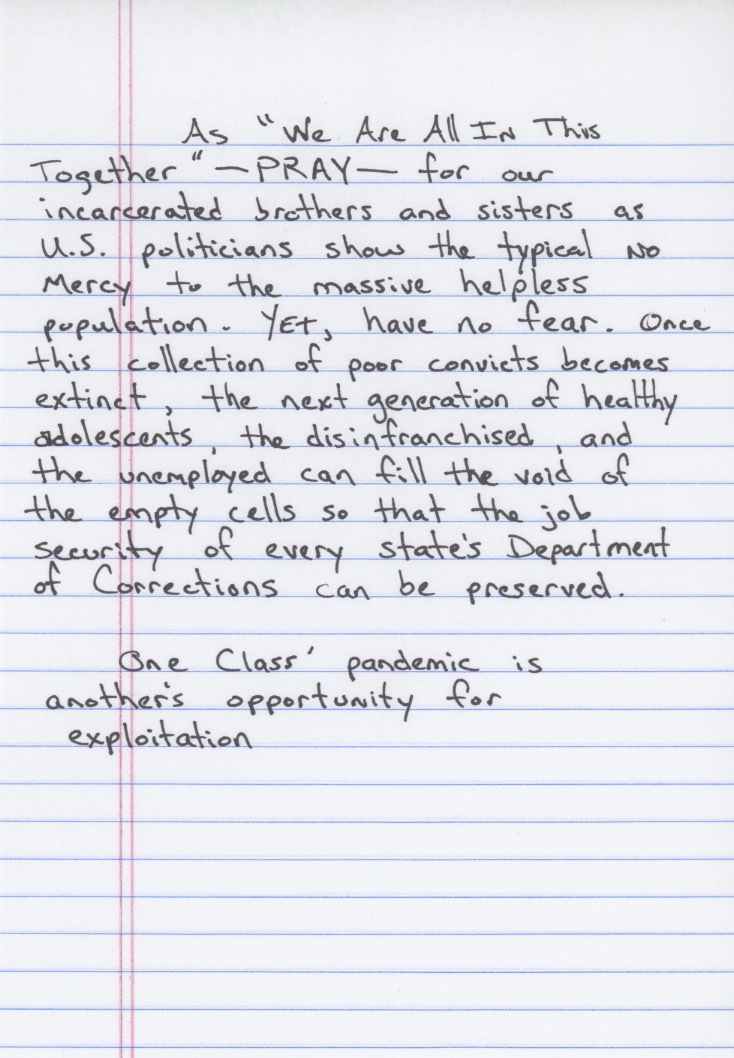 As "We Are All In This
Together" —PRAY— for our
incarcerated brothers and sisters as
U.S. politicians show the typical No
Mercy to the massive helpless
population. Yet, have no fear. Once
this collection of poor convicts becomes
extinct, the next generation of healthy
adolescents, the disinfranchised, and
the unemployed can fill the void of
the empty cells so that the job
security of every state's Department
of Corrections can be preserved.
One Class' pandemic is
another's opportunity for
exploitation